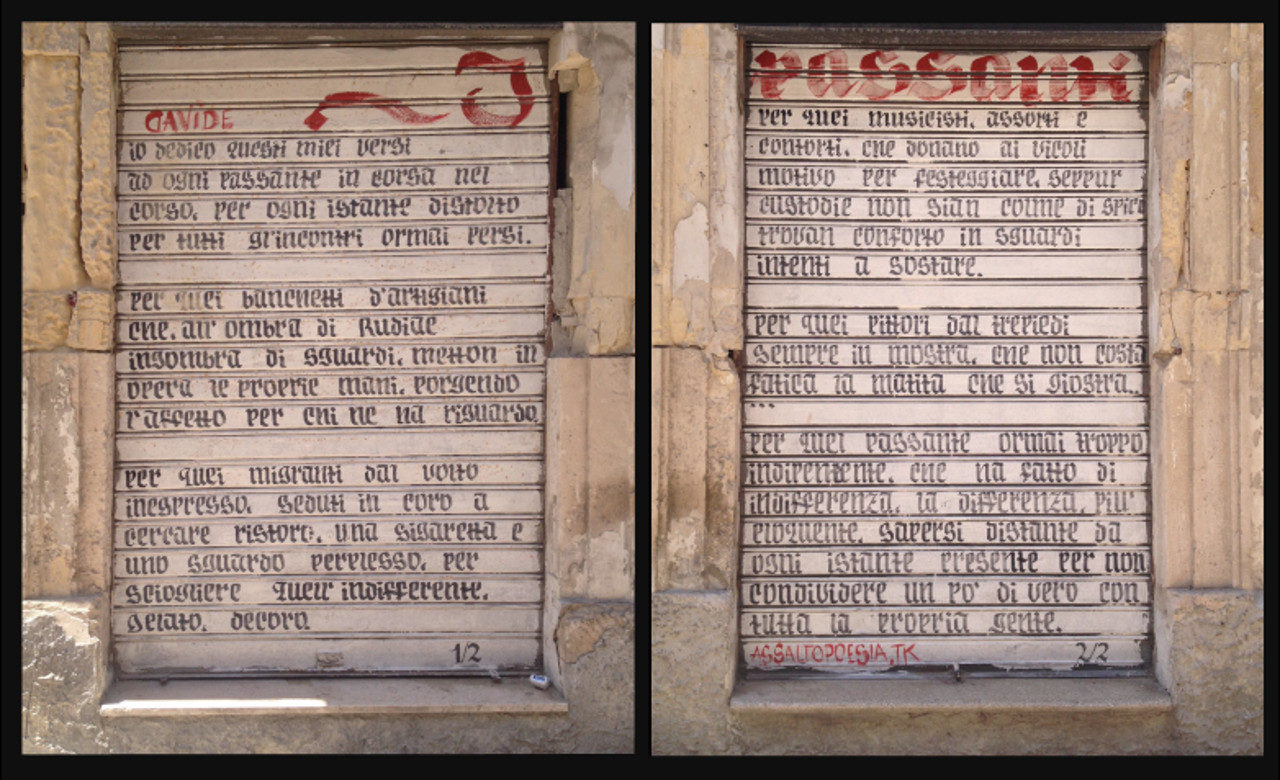 I
DAVIDE
io dedico questi miei versi
ad ogni passante in corsa nel
corso, per ogni istante distorto
per tutti gl'incontri ormai persi.
per quei banchetti d'artigiani
che, all'ombra di Rudiae
ingombra di sguardi, metton in
opera le proprie mani, porgendo
l'affetto per chi ne ha riguardo.
per quei migranti dal volto
inespresso, seduti in coro a
cercare ristoro, una sigaretta e
uno sguardo perplesso, per
sciogliere quell'indifferente,
gelato, decoro.
1/2
passanti
per quei musicisti, assorti e
contorti, che donano ai vicoli
motivo per festeggiare, seppur
custodie non sian colme di spicci
trovan conforto in sguardi
intenti a sostare.
per quei pittori dal treppiedi
sempre in mostra, che non costa
fatica la matita che si giostra..
...
per quel passante ormai troppo
indipendente, che ha fatto di
indifferenza, la differenza, piu'
eloquente, sapersi distante da
ogni istante presente per non
condividere un po' di vero con
tutta la propria gente.
ASSALTOPOESIA.TK
2/2